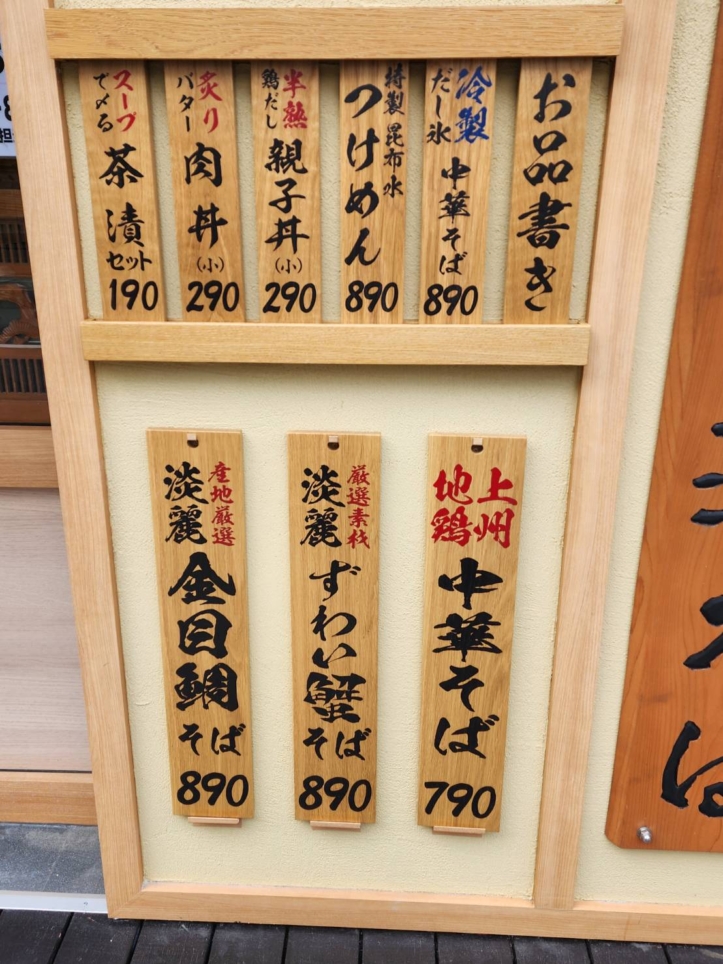 お品書き
冷製
だし氷
中華そば
890
特製昆布水
つけめん
890
半熟
鶏だし
親子丼
(小)
290
炙り
バター
肉丼
(小)
290
スープ
で〆る
茶漬
セット
190
上州
地鶏
中華そば
790
厳選素材
淡麗
ずわい蟹
そば
890
産地厳選
淡麗
金目鯛
そば
890